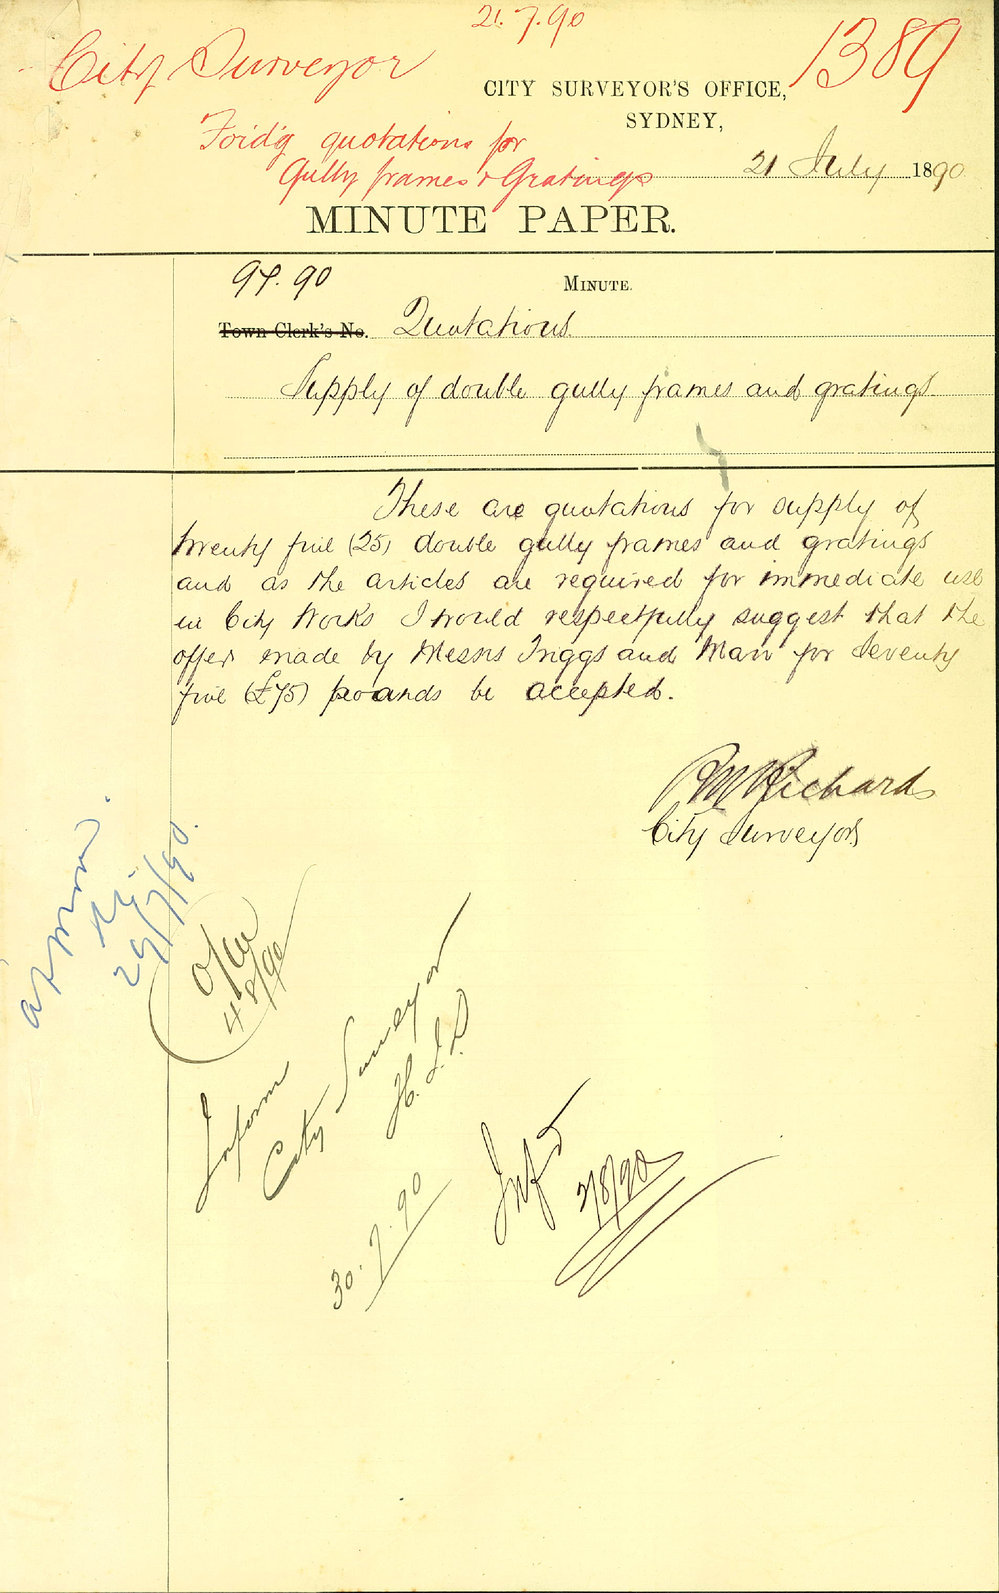 21.7.90
City Surveyor
1389
CITY SURVEYOR'S OFFICE,
SYDNEY,
Forid'g quotations for
Gully frames & Gratings
21 July 1890
MINUTE PAPER.
97.90
MINUTE.
Town Clerk's No. Quotations
Supply of double gully frames and gratings
These are quotations for supply of
twenty five (25) double gully frames and gratings
and as the articles are required for immediate use
in City Works I would respectfully suggest that the
offer made by Messrs Inggs and Marr for Seventy
five (£75) pounds be accepted.
RMRichards
City Surveyor
29/7/90.
4/8/90
Inform
City Surveyor
30.7.90
Inf
2/8/90